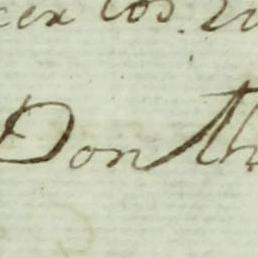 cer los
Don Th